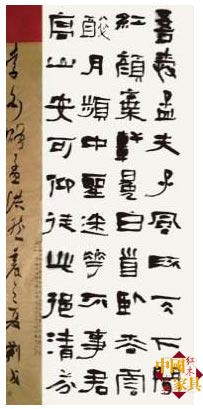 吾愛孟夫子風流天下聞
紅顏棄軒冕白首臥松雲
醉月頻中聖迷花不事君
高山安可仰徒此挹清芬
李白贈孟浩然
中國紅木家具